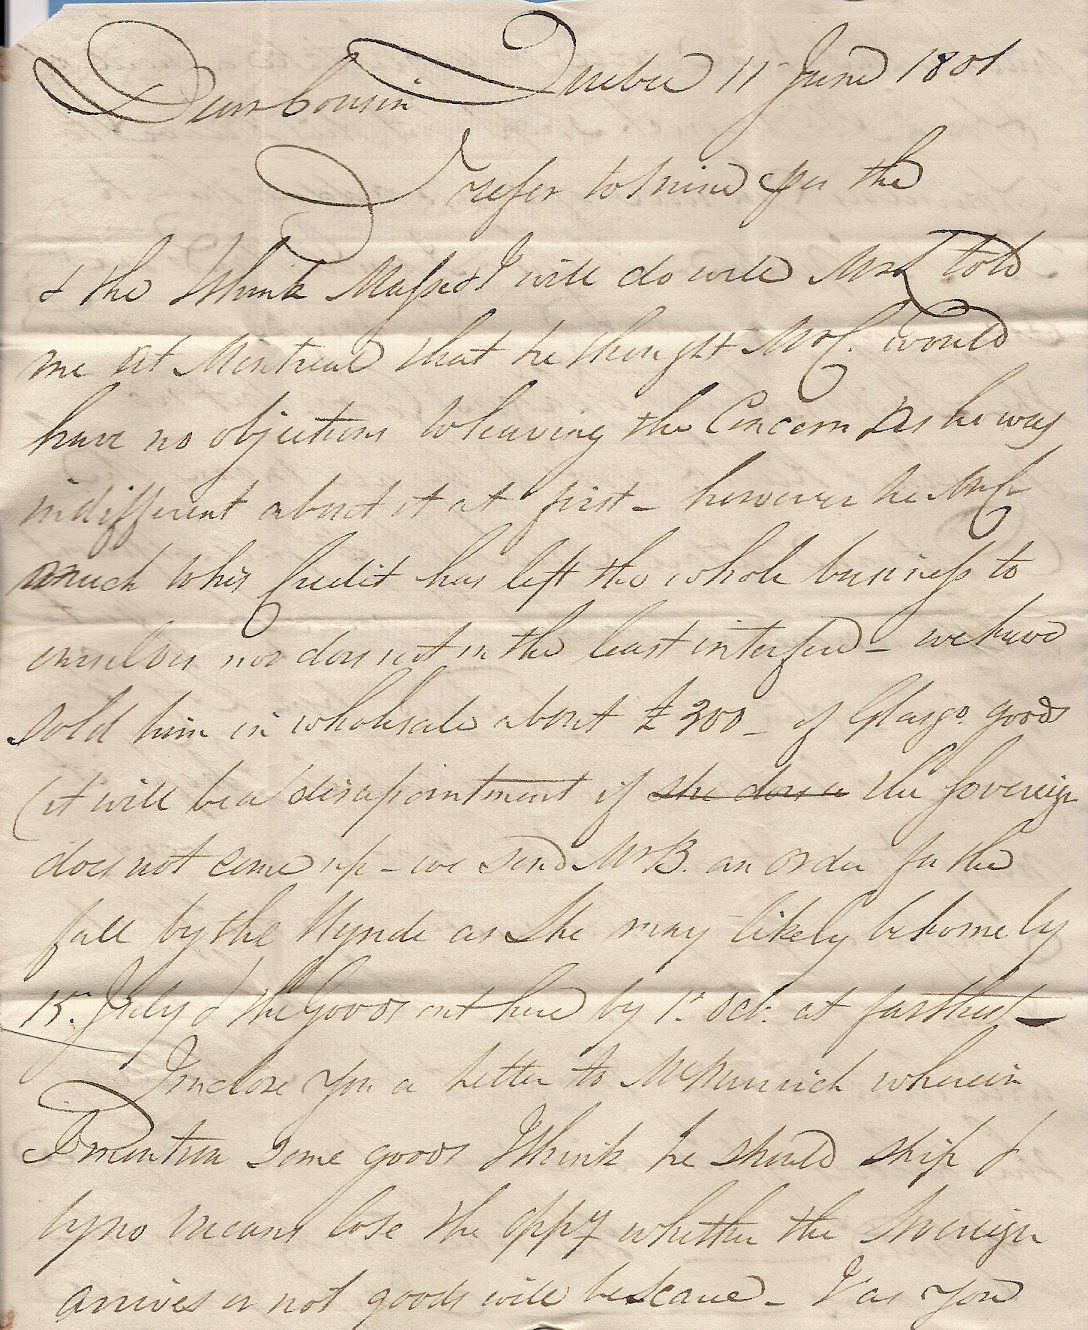 Quebec 11 June 1801
Dear Cousin
I refer to mine per the
& the I think Masped I will do well Mr L told
me at Montreal that he thought Mr C. would
have no objections to leaving the Concern as he was
indifferent about it at first - however he Mr C
much to his Credit has left the whole business to
ourselves nor does not in the least interfere - we have
Sold him in wholesale about £300 - of Glasgo. goods
(it will be a disapointment if she does n the Sovereign
does not come up - we send Mr B. an order for the
fall by the Nynde as She may likely be home by
15. July & the Goods out here by 1st. Oct. at farthest -
I inclose You a Letter to McNurrich wherein
I mention Some goods I think he should ship &
by no means lose the oppy whether the Sovereign
arrives or not goods will be Scarce - I as You